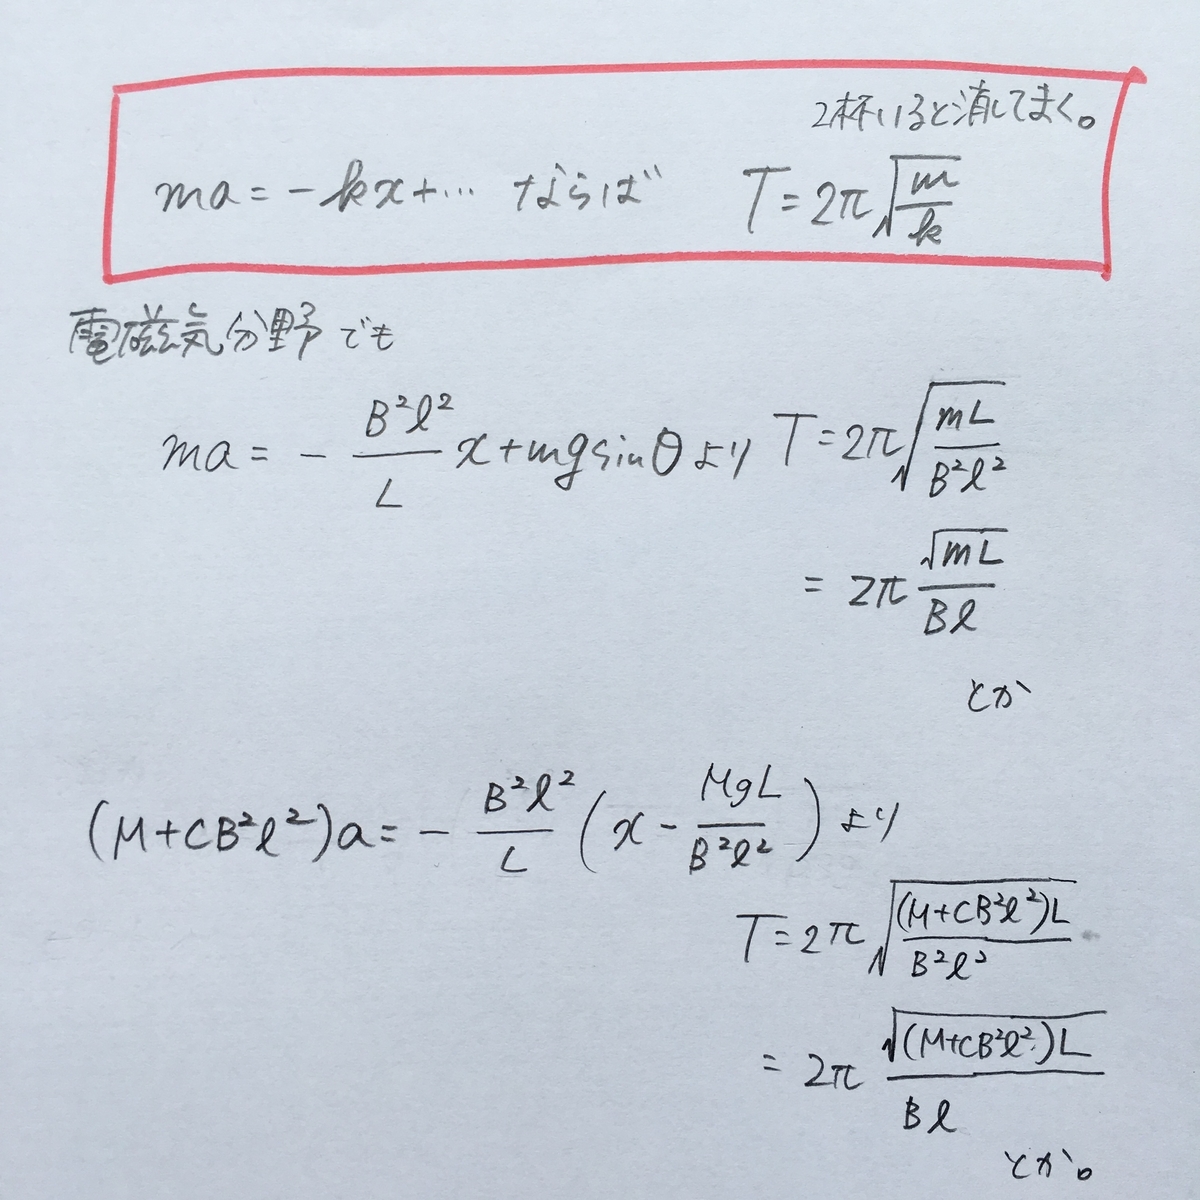 2杯いると消してまく。
ma = -kx + … ならば T = 2π√(m/k)
電磁気分野でも
ma = - (B²ℓ²/L) x + mg sinθ より T = 2π√(mL/(B²ℓ²))
= 2π √(mL)/(Bℓ)
とか
(M+CB²ℓ²)a = - (B²ℓ²/L) (x - MgL/(B²ℓ²)) より
T = 2π√((M+CB²ℓ²)L/(B²ℓ²))
= 2π √((M+CB²ℓ²)L)/(Bℓ)
とか。